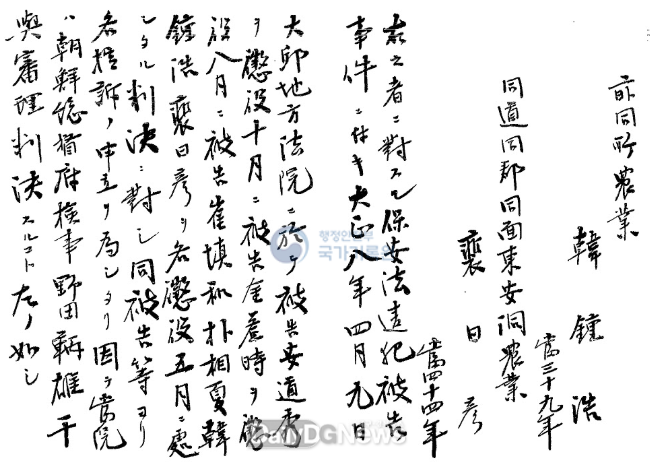 前同所農業
韓鍾浩
當三十九年
同道同郡同面東安洞農業
裵日彦
當四十四年
右之者ニ對スル保安法違犯被告
事件ニ付キ大正八年四月九日
大邱地方法院ニ於テ被告安道秀
ヲ懲役十月ニ被告金羲時ヲ懲
役八月ニ被告崔塡和朴相夏韓
鍾浩裵日彦ヲ各懲役五月ニ處
シタル判決ニ對シ同被告等ヨリ
各控訴ノ申立ヲ為シタリ因テ當院
ハ朝鮮総督府検事野田鞆雄干
與審理判決スルコト左ノ如シ
행정안전부
국가기록원
DailyDGNews